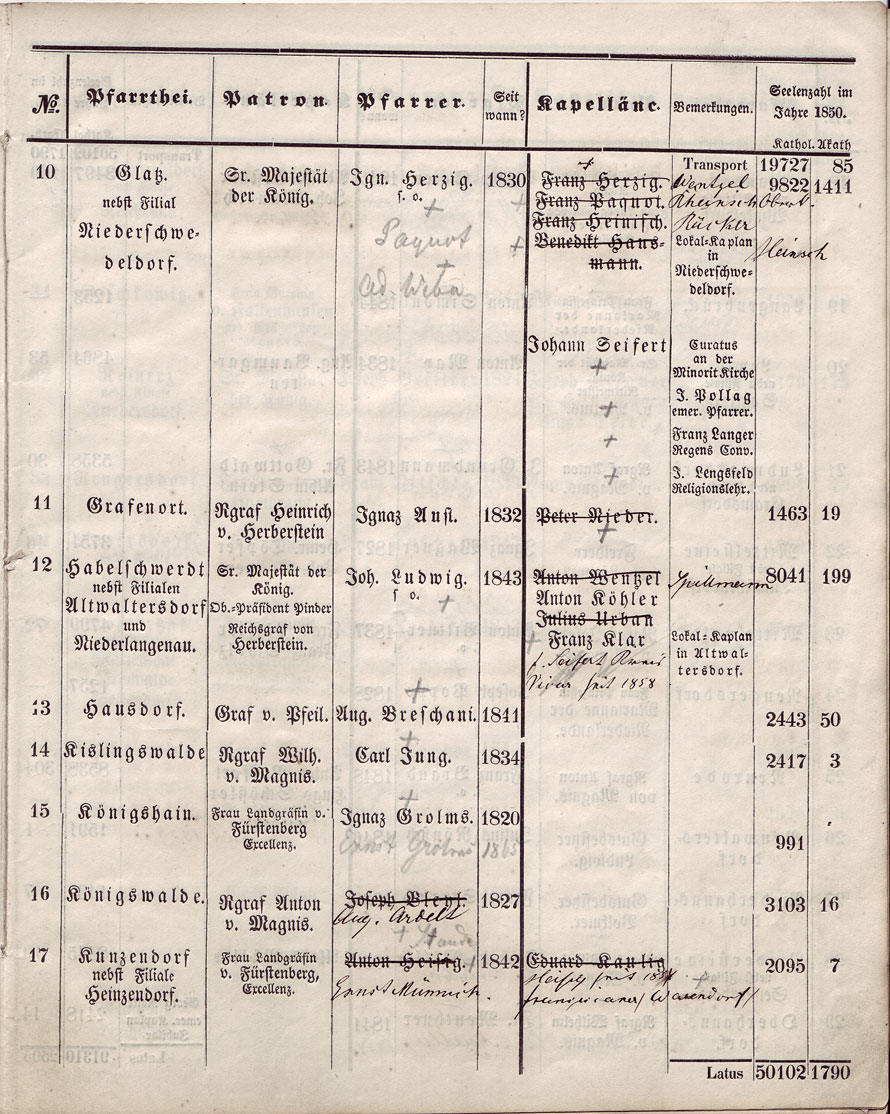 № Pfarrthei. Patron. Pfarrer. Seit wann? Kapelläne. Bemerkungen. Seelenzahl im Jahre 1850.
Kathol. Akath
Transport 19727 85
10 Glatz. Sr. Majestät Ign. Herzig. 1830 Franz Herzig. Wentzel 9822 1411
nebst Filial der König. s. o. Franz Paquot. Rheinsch Oberl.
Niederschwe- Paquot Franz Heinisch. Rücker
deldorf. Benedikt Hans- Lokal-Kaplan Heinsch
mann. in
Niederschwe-
deldorf.
Ad. Weber
Johann Seifert Curatus
an der
Minorit Kirche
J. Pollag
emer. Pfarrer.
Franz Langer
Regens Conv.
J. Lengsfeld
Religionslehr.
11 Grafenort. Rgraf Heinrich Ignaz Aust. 1832 Peter Nieder. 1463 19
v. Herberstein
12 Habelschwerdt Sr. Majestät der Joh. Ludwig. 1843 Anton Wentzel Spillmann 8041 199
nebst Filialen König. s o. Anton Köhler
Altwaltersdorf Ob.-Präsident Pinder Julius Urban
und Reichsgraf von Franz Klar Lokal-Kaplan
Niederlangenau. Herberstein. in Altwal-
tersdorf.
Seifert
seit 1858
13 Hausdorf. Graf v. Pfeil. Aug. Breschani. 1841 2443 50
14 Kislingswalde Rgraf Wilh. Carl Jung. 1834 2417 3
v. Magnis.
15 Königshain. Frau Landgräfin v. Ignaz Grolms. 1820
Fürstenberg Ernst 1865 991
Excellenz.
16 Königswalde. Rgraf Anton Joseph Bleyl. 1827 3103 16
v. Magnis. Aug. Ardelt
17 Kunzendorf Frau Landgräfin Anton Heisig. 1842 Eduard Kaulig 2095 7
nebst Filiale v. Fürstenberg, seit
Heinzendorf. Excellenz. Ernst Münnich. Warendorf
Latus 50102 1790